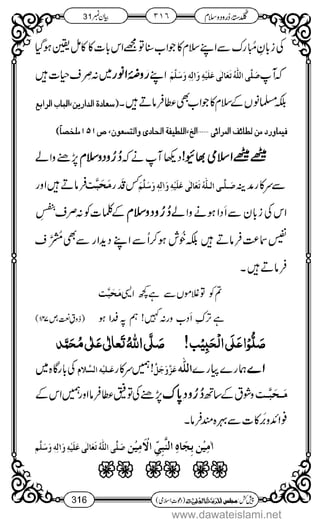 گلدستۂ درود و سلام ٣١٦ بیان نمبر 31
کی زبانِ مبارک سے اپنے سلام کا جواب سنا تو مجھے اس بات کا کامل یقین ہوگیا
کہ آپ صَلَّی اللّٰہُ تَعَالٰی عَلَیْہِ وَاٰلِہٖ وَسَلَّمَ اپنے روضۂ انور میں نہ صِرف حیات ہیں
بلکہ مسلمانوں کے سلام کا جواب بھی عطا فرماتے ہیں۔ (سعادة الدارین، الباب الرابع
فیماورد من لطائف المرائی — الخ، اللطیفة الحادی والتسعون، ص ١٥١ ملخصاً)
میٹھے میٹھے اسلامی بھائیو! دیکھا آپ نے کہ دُرُود و سلام پڑھنے والے
سے سرکارِ مدینہ صَلَّی اللّٰہُ تَعَالٰی عَلَیْہِ وَاٰلِہٖ وَسَلَّمَ کس قَدَر مَحَبَّت فرماتے ہیں اور
اس کی زبان سے اَدا ہونے والے دُرُود و سلام کے کلمات کو نہ صِرف بنفسِ
نفیس سَماعت فرماتے ہیں بلکہ خُوش ہو کر اسے اپنے دیدار سے بھی مُشرَّف
فرماتے ہیں۔
تم کو تو غلاموں سے ہے کچھ ایسی مَحَبَّت
ہے ترکِ اَدب ورنہ کہیں! ہم پہ فدا ہو (ذوقِ نعت، ص ١٤٧)
صَلُّوْا عَلَی الْحَبِیْب! صَلَّی اللّٰہُ تَعَالٰی عَلٰی مُحَمَّد
اے ہمارے پیارے اللّٰہ عَزَّوَجَلَّ! ہمیں سرکار عَلَیْہِ السَّلَام کی بارگاہ میں
مَحَبَّت و شوق کے ساتھ دُرُودِ پاک پڑھنے کی توفیق عطا فرما اور ہمیں اس کے
فوائد و برکات سے بہرہ مند فرما۔
اٰمِیْن بِجَاہِ النَّبِیِّ الْاَمِیْن صَلَّی اللّٰہُ تَعَالٰی عَلَیْہِ وَاٰلِہٖ وَسَلَّمَ
316 پیش کش: مجلس (دعوتِ اسلامی)
www.dawateislami.net